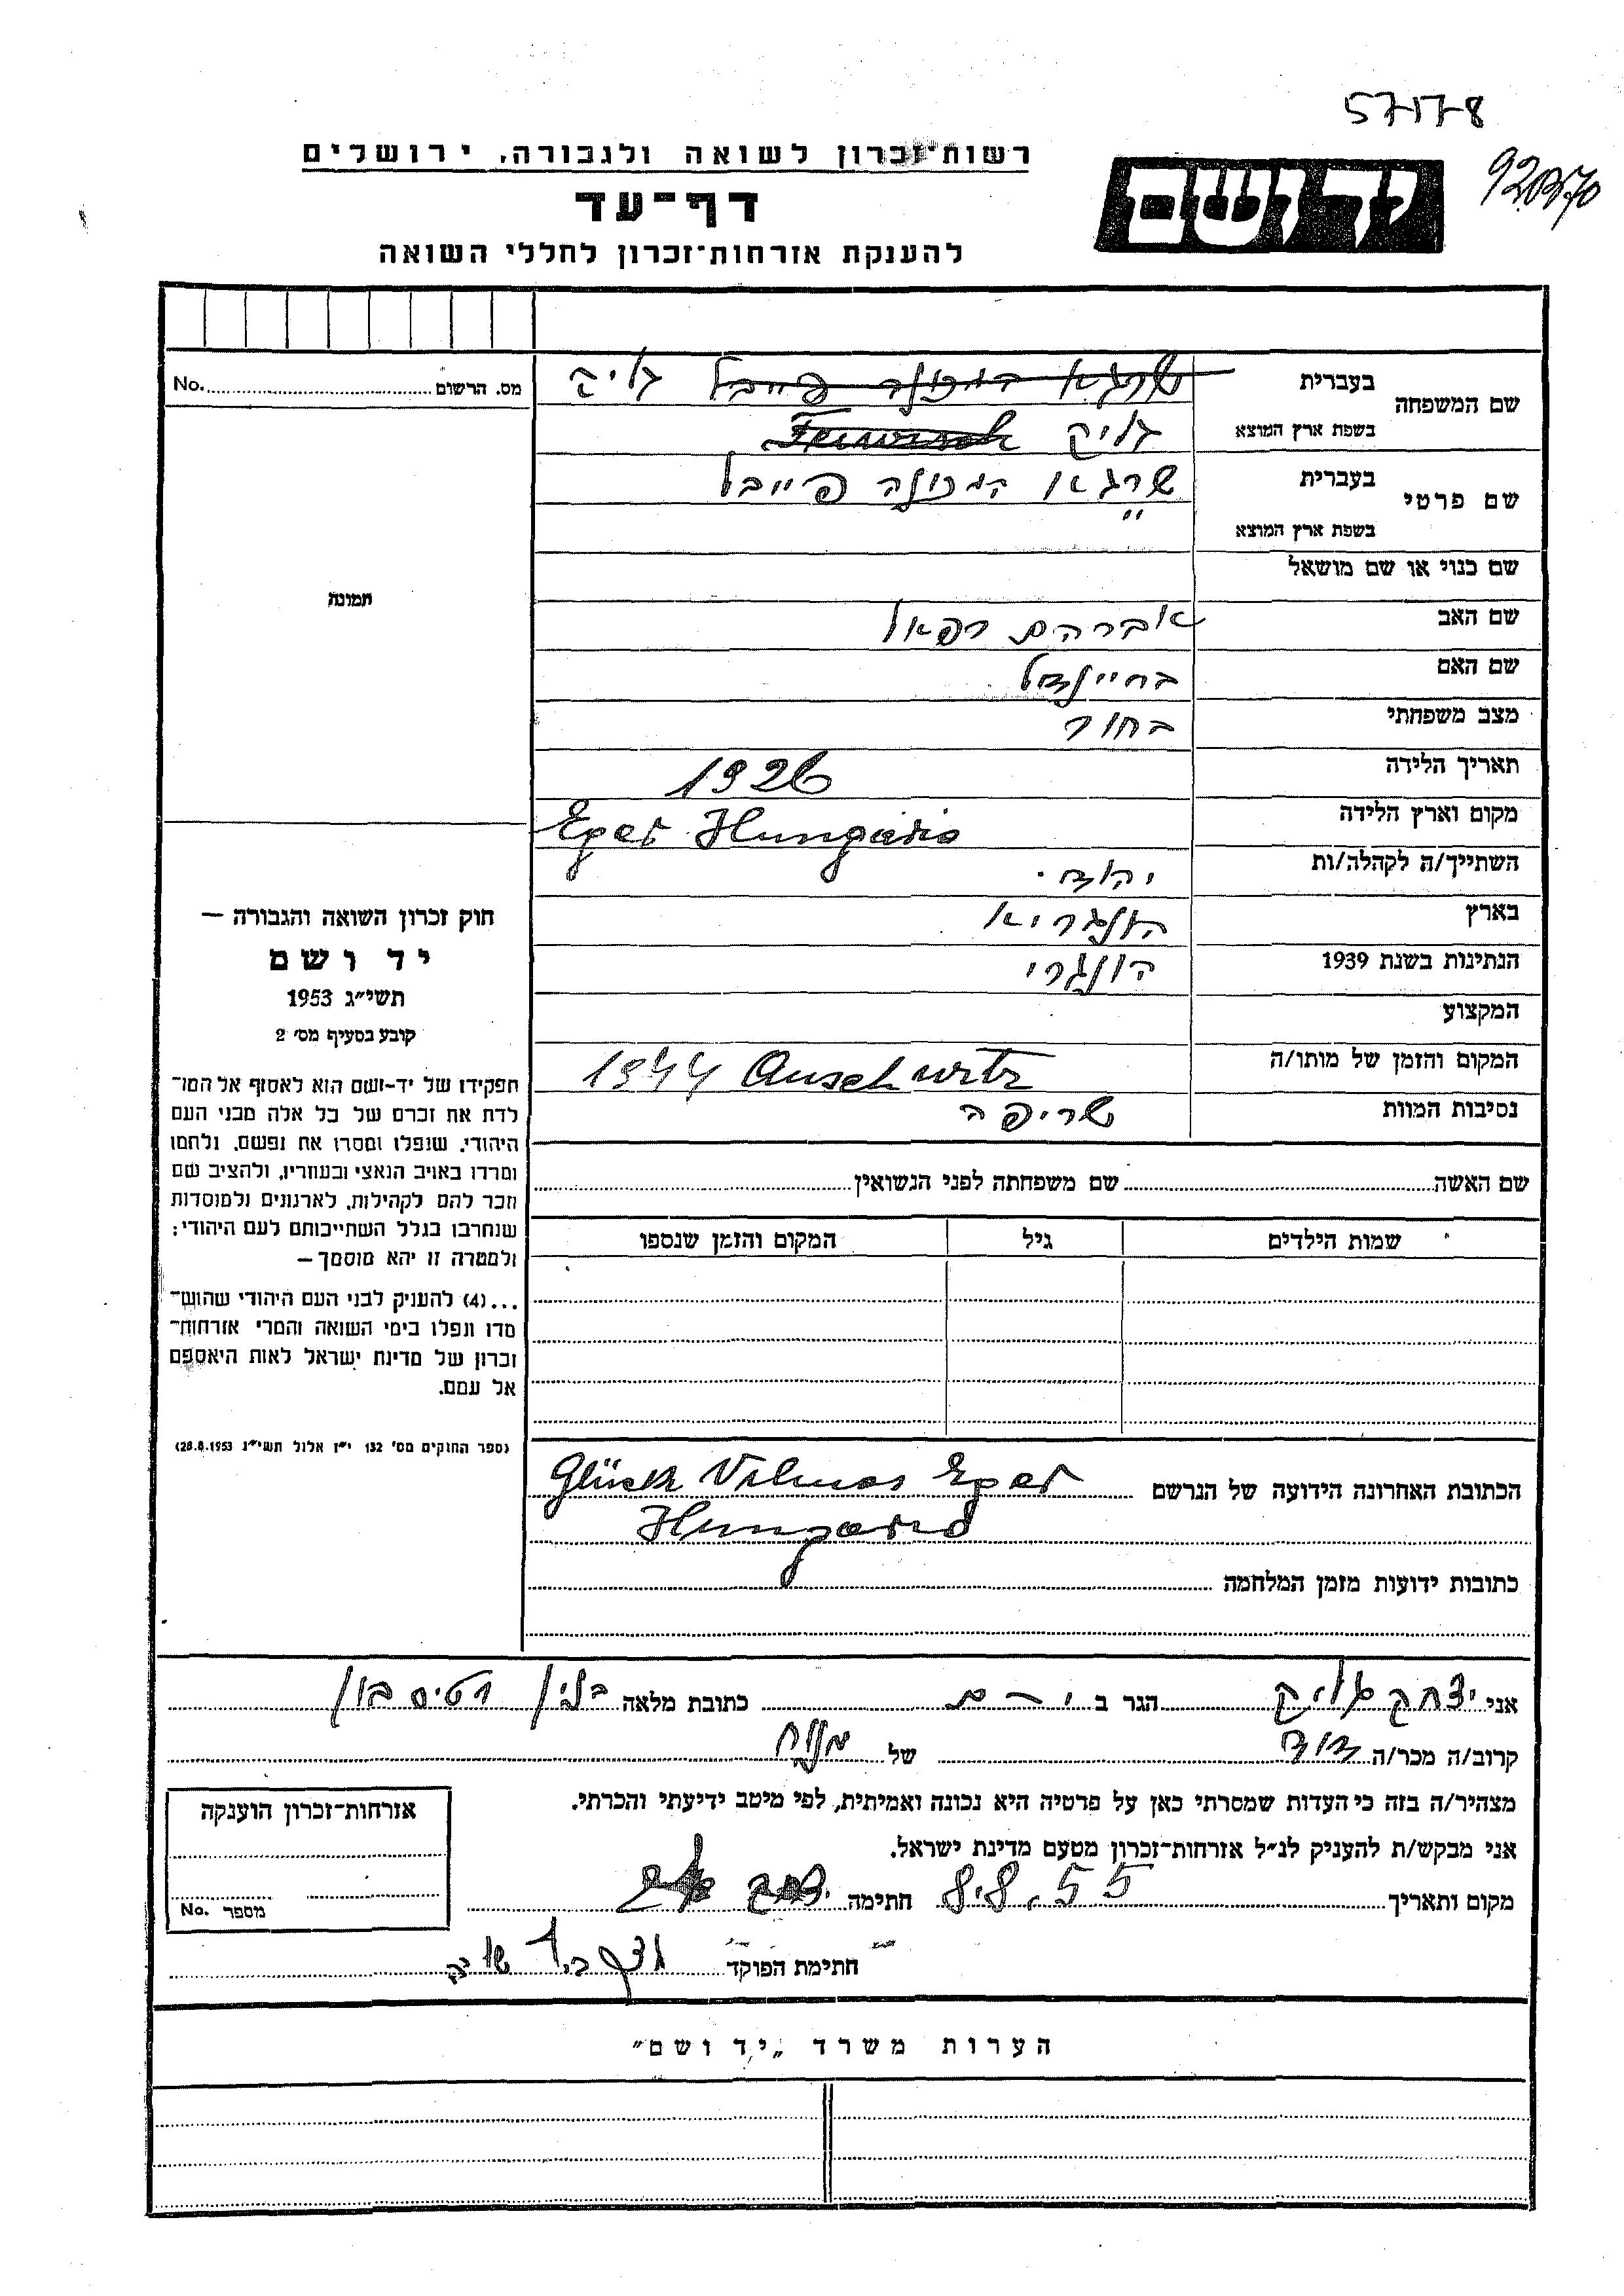 57178
92037o
רשות־זכרון לשואה ולגבורה, ירושלים
יד ושם
דף־עד
להענקת אזרחות־זכרון לחללי השואה
שם המשפחה
בעברית שרגא המכונה פייבל גליק
בשפת ארץ המוצא גליק
שם פרטי
בעברית שרגא המכונה פייבל
בשפת ארץ המוצא "
שם כנוי או שם מושאל
שם האב אברהם רפאל
שם האם
מצב משפחתי בחור
תאריך הלידה 1926
מקום וארץ הלידה Eger Hungaria
השתייך/ה לקהלה/ות יהודי
בארץ הונגריא
הנתינות בשנת 1939 הונגרי
המקצוע
המקום והזמן של מותו/ה 1944 Auschwitz
נסיבות המוות שריפה
שם האשה שם משפחתה לפני הנשואין
שמות הילדים גיל המקום והזמן שנספו
הכתובת האחרונה הידועה של הנרשם Glück Vilmos Eger
Hungaria
כתובות ידועות מזמן המלחמה
מס. הרשום No.
תמונה
חוק זכרון השואה והגבורה —
יד ושם
תשי״ג 1953
קובע בסעיף מס׳ 2
תפקידו של יד-ושם הוא לאסוף אל המו־
לדת את זכרם של כל אלה מבני העם
היהודי, שנפלו ומסרו את נפשם, נלחמו
ומרדו באויב הנאצי ובעוזריו, ולהציב שם
וזכר להם לקהילות, לארגונים ולמוסדות
שנחרבו בגלל השתייכותם לעם היהודי;
ולמטרה זו יהא מוסמך —
...(4) להעניק לבני העם היהודי שהוש־
מדו ונפלו בימי השואה והמרי אזרחות־
זכרון של מדינת ישראל לאות היאספם
אל עמם.
(ספר החוקים מס׳ 132 י״ז אלול תשי״ג 28.8.1953)
אני יצחק גליק הגר ב י-ם כתובת מלאה בנין רטיסבון
קרוב/ה מכר/ה דוד של מנוח
מצהיר/ה בזה כי העדות שמסרתי כאן על פרטיה היא נכונה ואמיתית, לפי מיטב ידיעתי והכרתי.
אני מבקש/ת להעניק לנ״ל אזרחות־זכרון מטעם מדינת ישראל.
מקום ותאריך 8.8.55 חתימה יצחק גליק
חתימת הפוקד
אזרחות־זכרון הוענקה
מספר No.
הערות משרד „יד ושם"